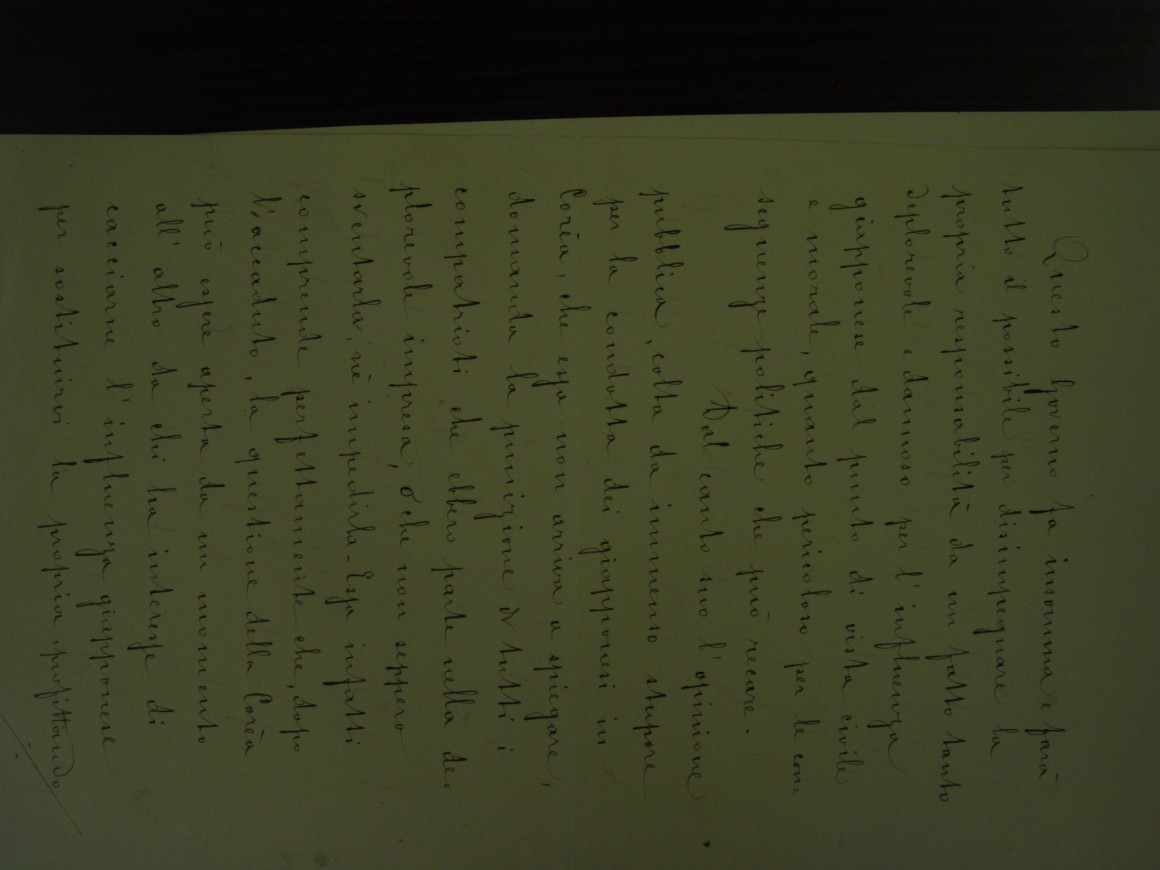 Questo Governo fa insomma e farà
tutto il possibile per disimpegnare la
propria responsabilità da un fatto tanto
deplorevole e dannoso per l'influenza
giapponese dal punto di vista civile
e morale, quanto pericoloso per le con=
seguenze politiche che può recare.
Dal canto suo l'opinione
pubblica, colta da immenso stupore
per la condotta dei giapponesi in
Corèa, che essa non arriva a spiegare,
domanda la punizione di tutti i
compatrioti che ebbero parte nella de=
plorevole impresa, o che non seppero
sventarla, nè impedirla - Essa infatti
comprende perfettamente che, dopo
l'accaduto, la questione della Corèa
può essere aperta da un momento
all'altro da chi ha interesse di
cacciarne l'influenza giapponese
per sostituirvi la propria, profittando